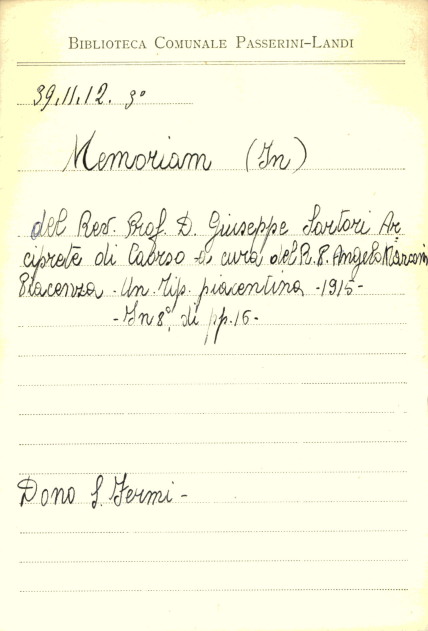 BIBLIOTECA COMUNALE PASSERINI-LANDI
39.11.12. 3°
Memoriam (In)
del Rev. Prof. D. Giuseppe Sartori Ar
ciprete di Caorso - a cura del R. P. Angelo
Piacenza - Un. Tip. piacentina - 1915 -
- In 8°, di pp. 16 -
Dono S. Fermi -